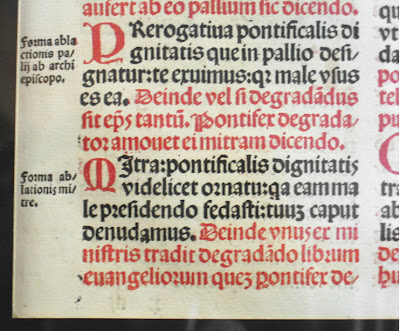 aufert ab eo pallium sic dicendo.
Forma abla
ctionis pa
lij ab archi
episcopo.
PRerogatiua pontificalis di
gnitatis que in pallio desi
gnatur: te exuimus: qr male vsus
es ea. Deinde vel si degradãdus
sit ep̃s tantũ. Pontifex degrada
tor amouet ei mitram dicendo.
Forma ab
lationis mi
tre.
MItra: pontificalis dignitatis
videlicet ornatu: qa eam ma
le presidendo fedasti: tuuʒ caput
denudamus. Deinde vnus ex mi
nistris tradit degradãdo librum
euangeliorum queʒ pontifex de-
qu